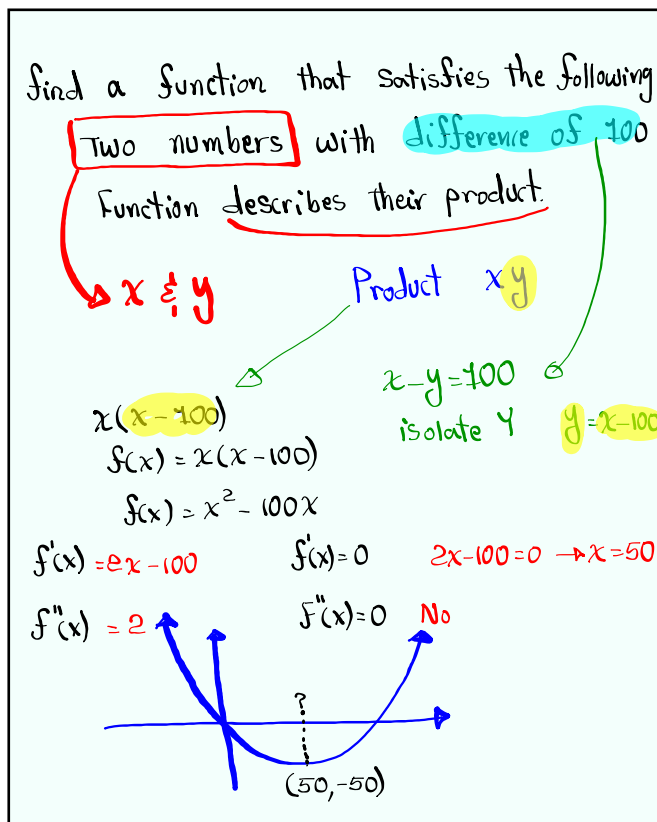 find a function that satisfies the following
Two numbers with difference of 100
Function describes their product.
x & y
Product xy
x(x-100)
x-y=100
isolate Y y=x-100
f(x) = x(x-100)
f(x) = x² - 100x
f'(x) = 2x-100 f'(x)=0 2x-100=0 →x=50
f"(x) = 2 f"(x)=0 No
?
(50,-50)